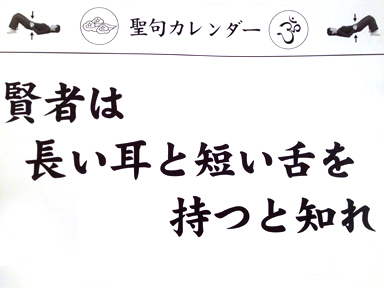 聖句カレンダー
ॐ
賢者は
長い耳と短い舌を
持つと知れ